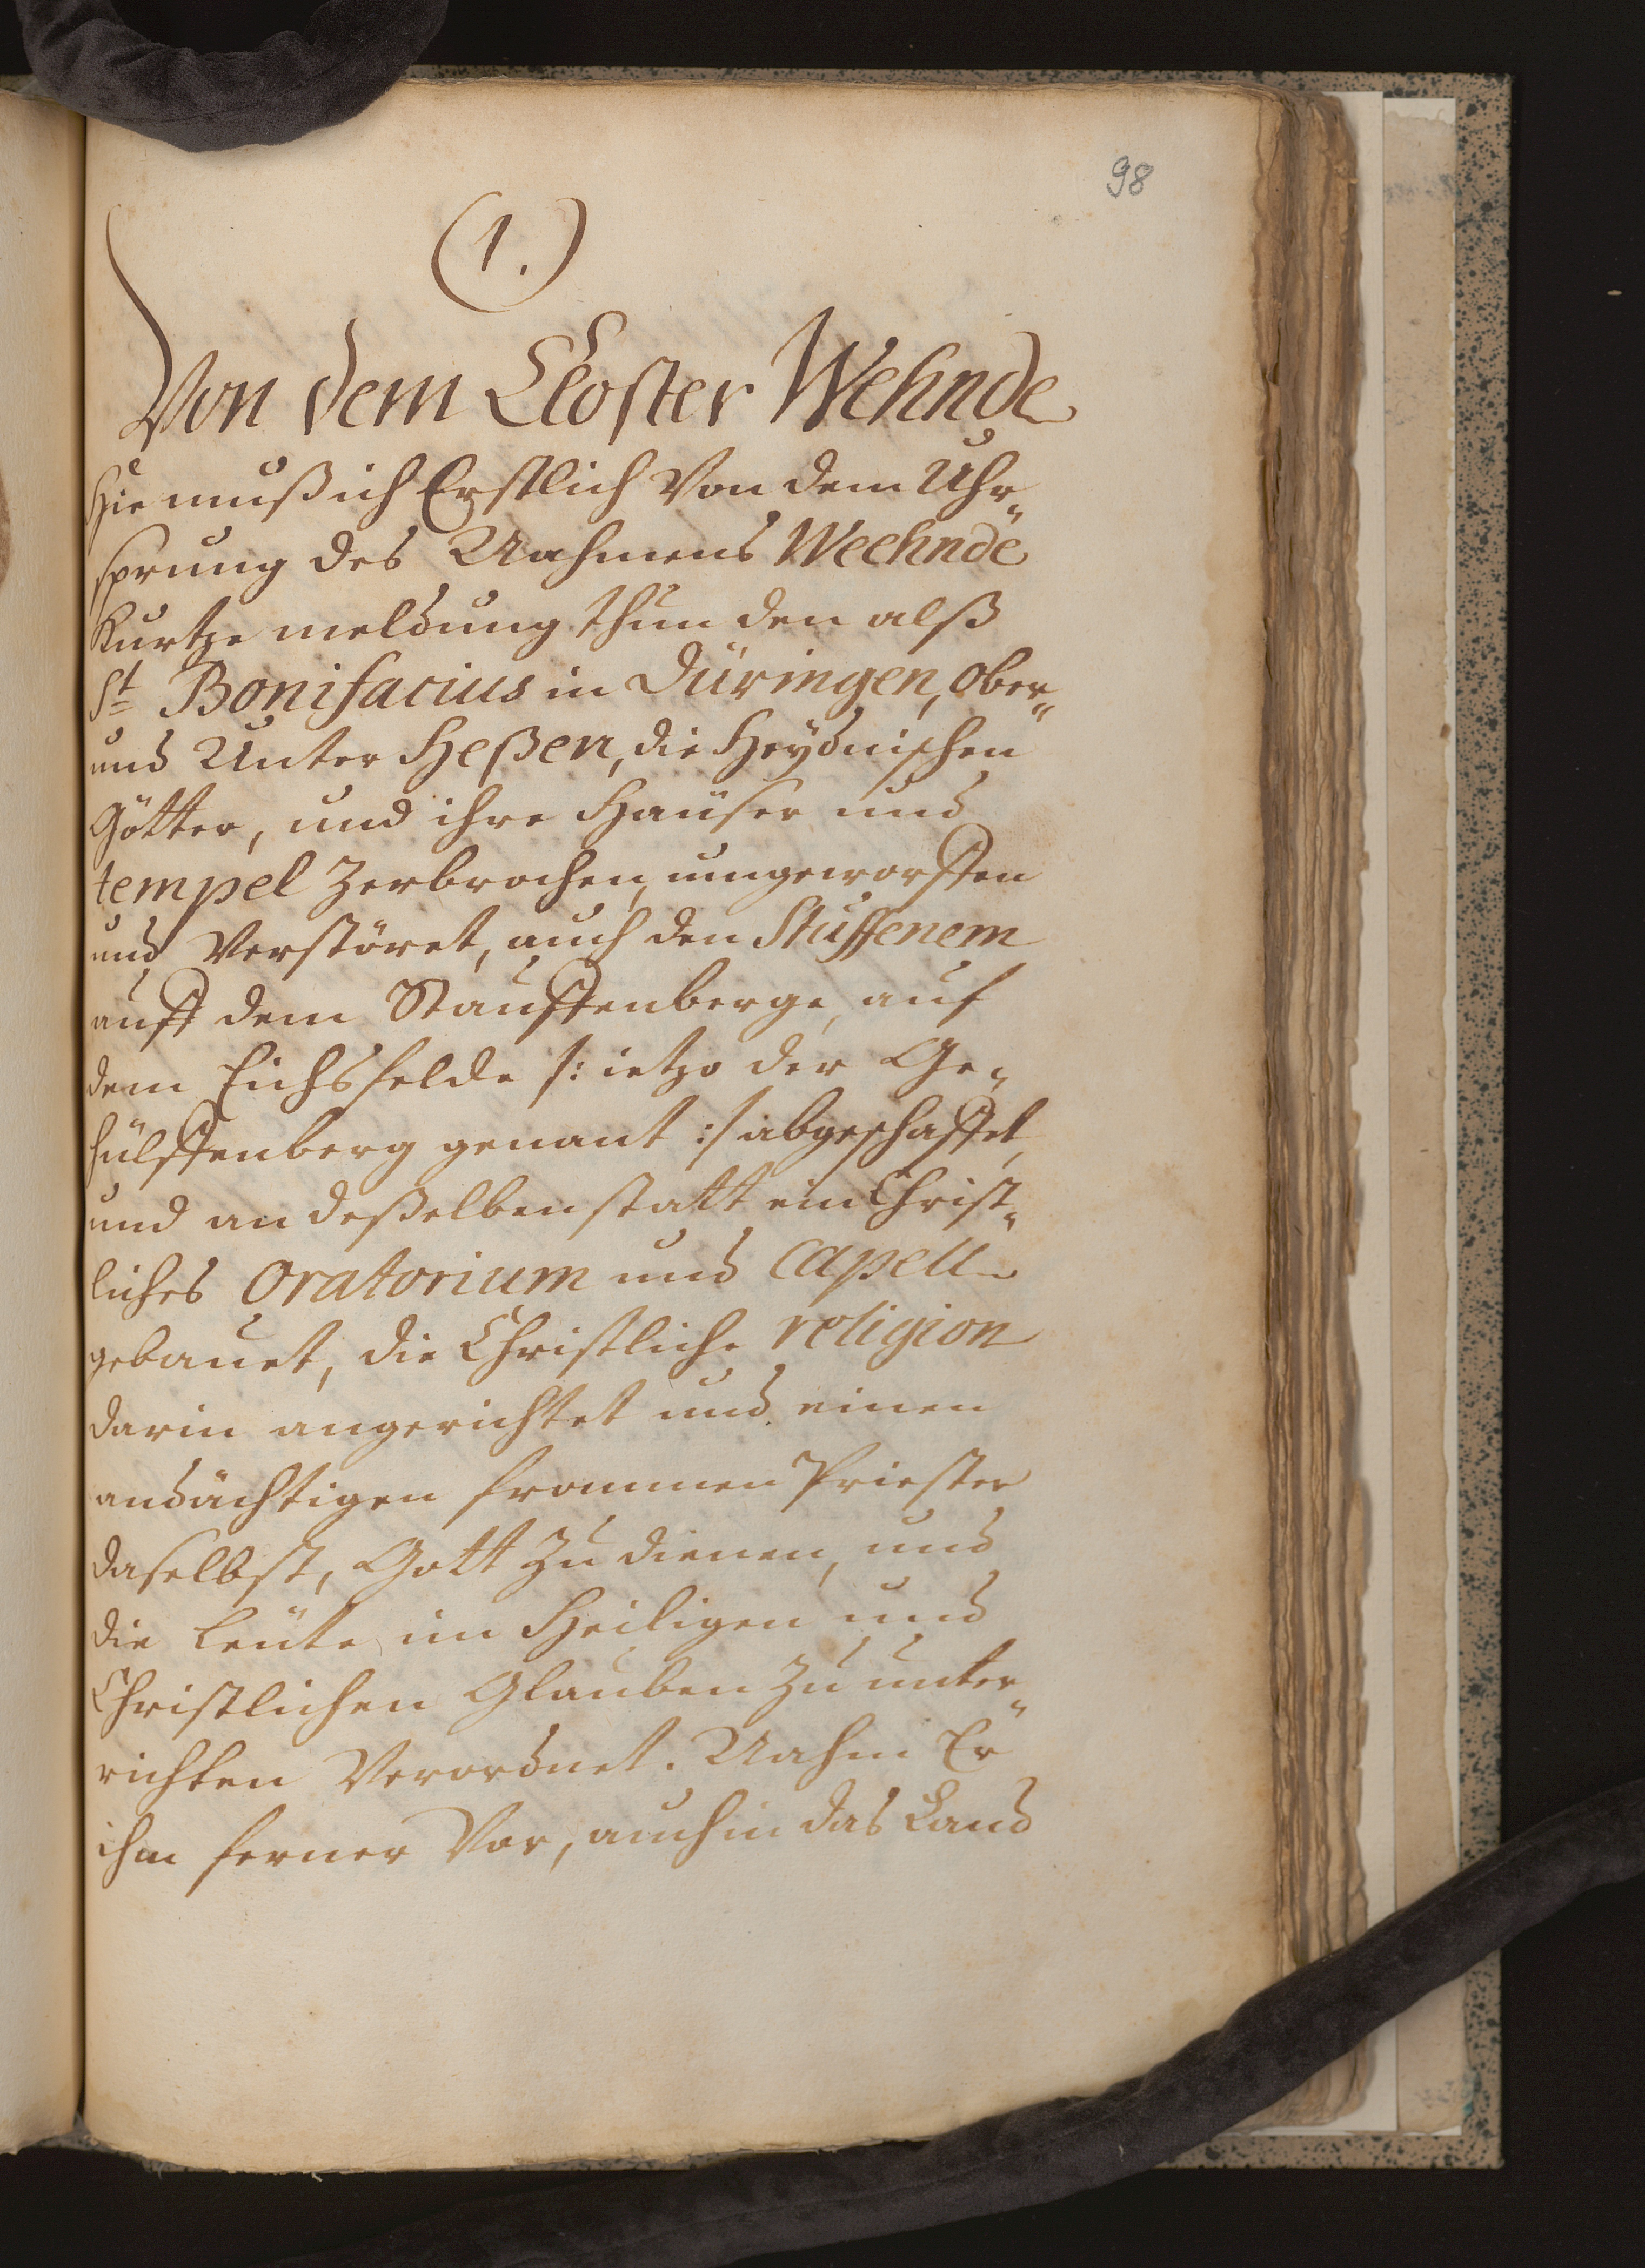 98
(1.)
Von dem Closter Wehnde
Hie muß ich Erstlich Von dem Uhr„
sprung des Nahmens Weehnde
Kurtze meldung thun den alß
St Bonifacius in Düringen, ober„
und Unter Heßen, die Heydnischen
Götter, und ihre Haüser und
tempel Zerbrochen, umgeworffen
und Verstöret, auch den Stuffenem
auff dem Stauffenberge, auf
dem Eichsfelde /: ietzo der Ge„
hülffenberg genant :/ abgeschaffet,
und an deßelben statt ein Christ„
liches Oratorium und Capelle
gebauet, die Christliche religion
darin angerichtet und einen
andächtigen frommen Priester
daselbst, Gott zu dienen, und
die Leüte im Heiligen und
Christlichen Glauben zu unter„
richten Verordnet. Nahm Er
ihm ferner Vor, auch in das Land